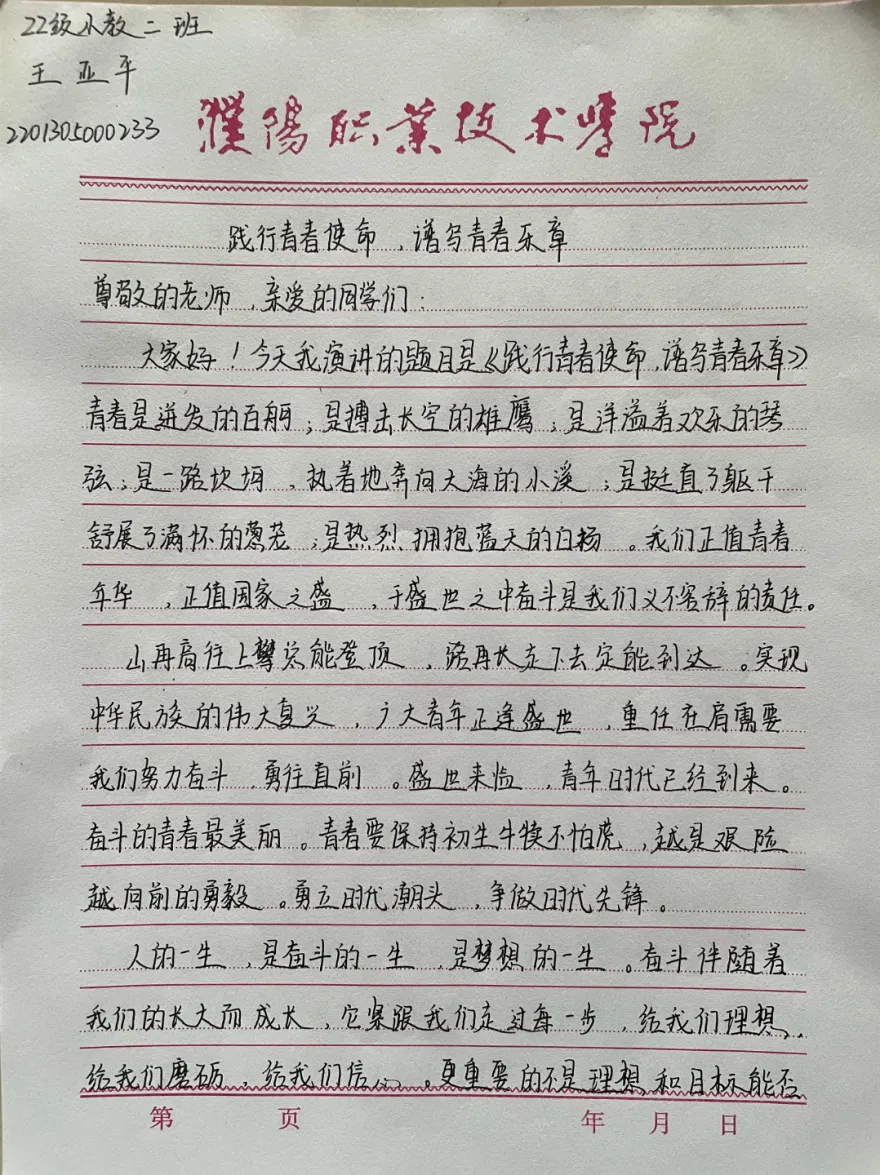 22级小教二班
王亚平
2201305000233
濮阳职业技术学院
践行青春使命,谱写青春乐章
尊敬的老师,亲爱的同学们:
大家好!今天我演讲的题目是《践行青春使命,谱写青春乐章》
青春是迸发的百舸;是搏击长空的雄鹰;是洋溢着欢乐的琴
弦;是一路坎坷,执着地奔向大海的小溪;是挺直了躯干
舒展了满怀的葱茏;是热烈拥抱蓝天的白杨。我们正值青春
年华,正值国家之盛,于盛世之中奋斗是我们义不容辞的责任。
山再高往上攀总能登顶,路再长走下去定能到达。实现
中华民族的伟大复兴,广大青年正逢盛世,重任在肩需要
我们努力奋斗,勇往直前。盛世来临,青年时代已经到来。
奋斗的青春最美丽。青春要保持初生牛犊不怕虎,越是艰险
越向前的勇毅。勇立时代潮头,争做时代先锋。
人的一生,是奋斗的一生,是梦想的一生。奋斗伴随着
我们的长大而成长,它紧跟我们走过每一步,给我们理想,
给我们磨砺,给我们信心。更重要的不是理想和目标能否
第 页 年 月 日